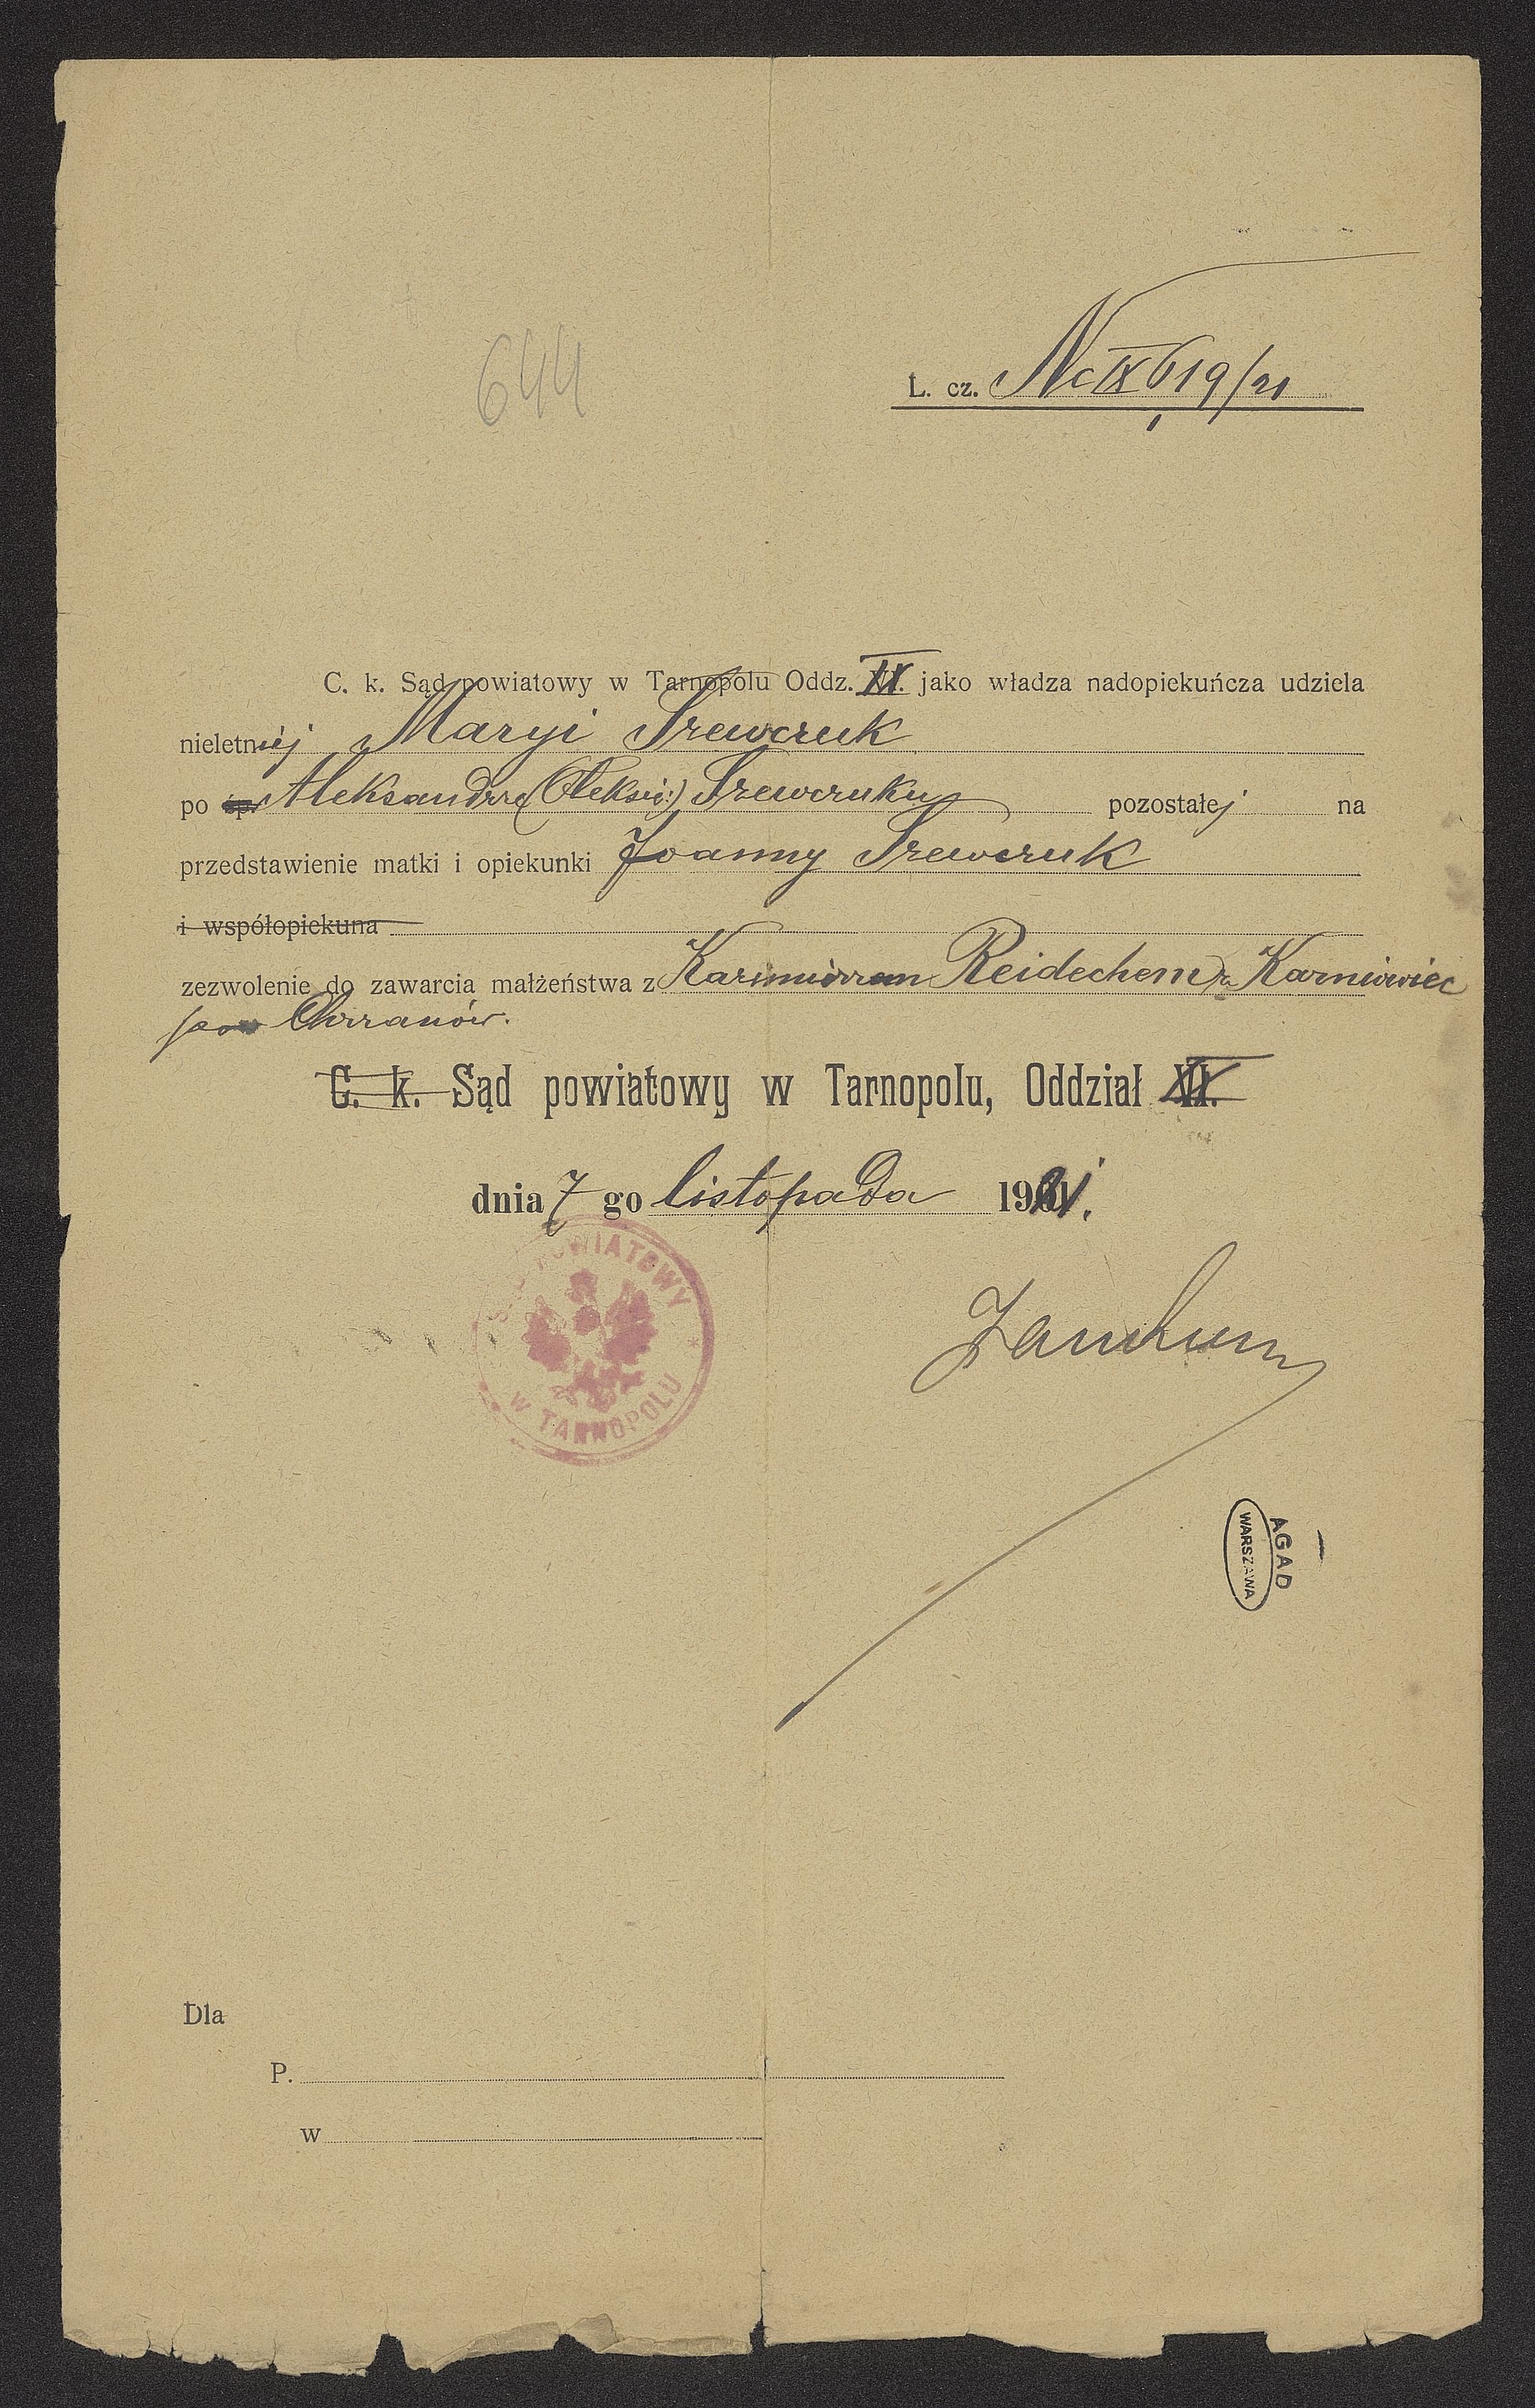 644
L. cz. Nc IX 619/21
C. k. Sąd powiatowy w Tarnopolu Oddz. IX. jako władza nadopiekuńcza udziela
nieletniej Maryi Szewczuk
po Aleksandrze (Oleksie) Szewczuku pozostałej na
przedstawienie matki i opiekunki Joanny Szewczuk
i współopiekuna
zezwolenie do zawarcia małżeństwa z Kazimierzem Reidechem z Karniowiec
pow Chrzanów.
C. k. Sąd powiatowy w Tarnopolu, Oddział IX.
dnia 7 go listopada 1921.
SĄD POWIATOWY
W TARNOPOLU
AGAD
WARSZAWA
Dla
P.
w